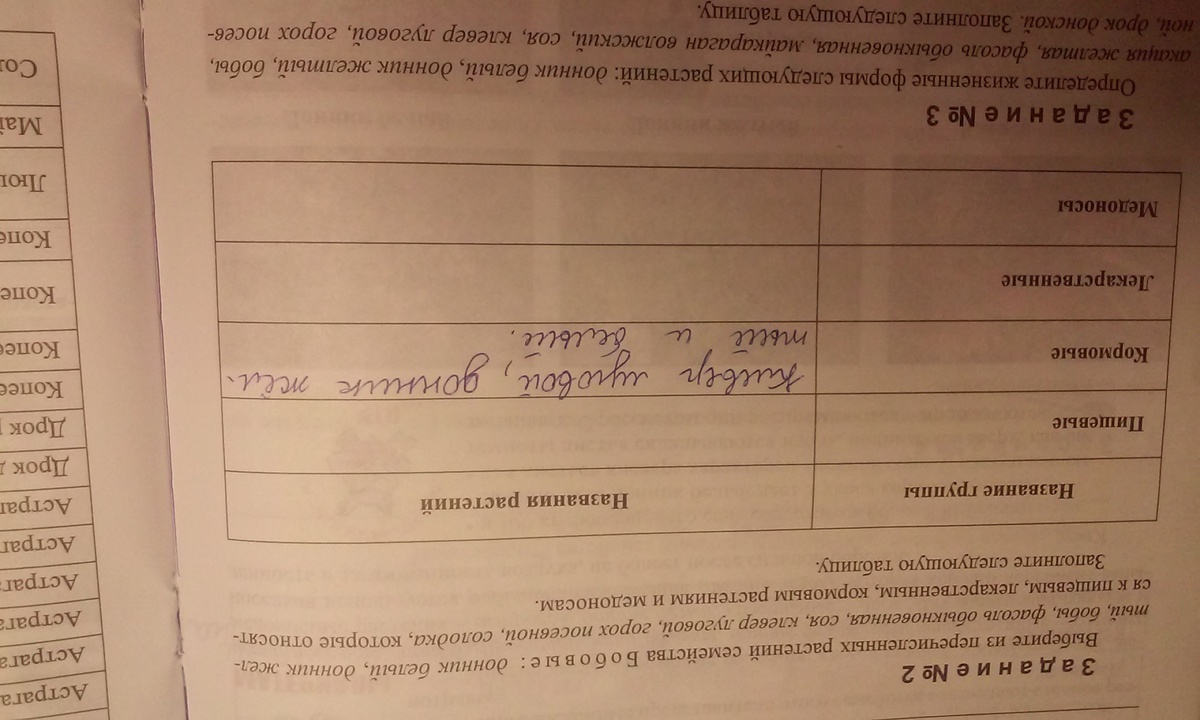 Задание № 2
Выберите из перечисленных растений семейства Бобовые: донник белый, донник жел-
тый, бобы, фасоль обыкновенная, соя, клевер луговой, горох посевной, солодка, которые относят-
ся к пищевым, лекарственным, кормовым растениям и медоносам.
Заполните следующую таблицу.
Название группы Названия растений
Пищевые
Кормовые Клевер луговой, донник жёл-
тый и белый.
Лекарственные
Медоносы
Задание № 3
Определите жизненные формы следующих растений: донник белый, донник желтый, бобы,
акация желтая, фасоль обыкновенная, майкараган волжский, соя, клевер луговой, горох посев-
ной, дрок донской. Заполните следующую таблицу.
Астрага
Астрага
Астрага
Астраг
Астраг
Астраг
Дрок д
Дрок
Копее
Копее
Копе
Копе
Люц
Май
Сол